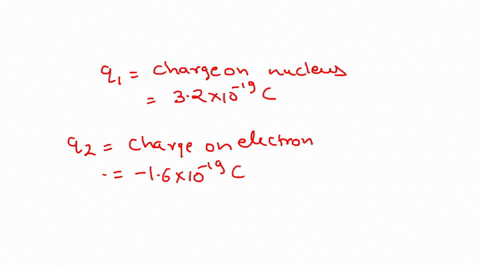 q₁ = charge on nucleus
= 3.2×10⁻¹⁹ C
q₂ = charge on electron
= -1.6×10⁻¹⁹ C